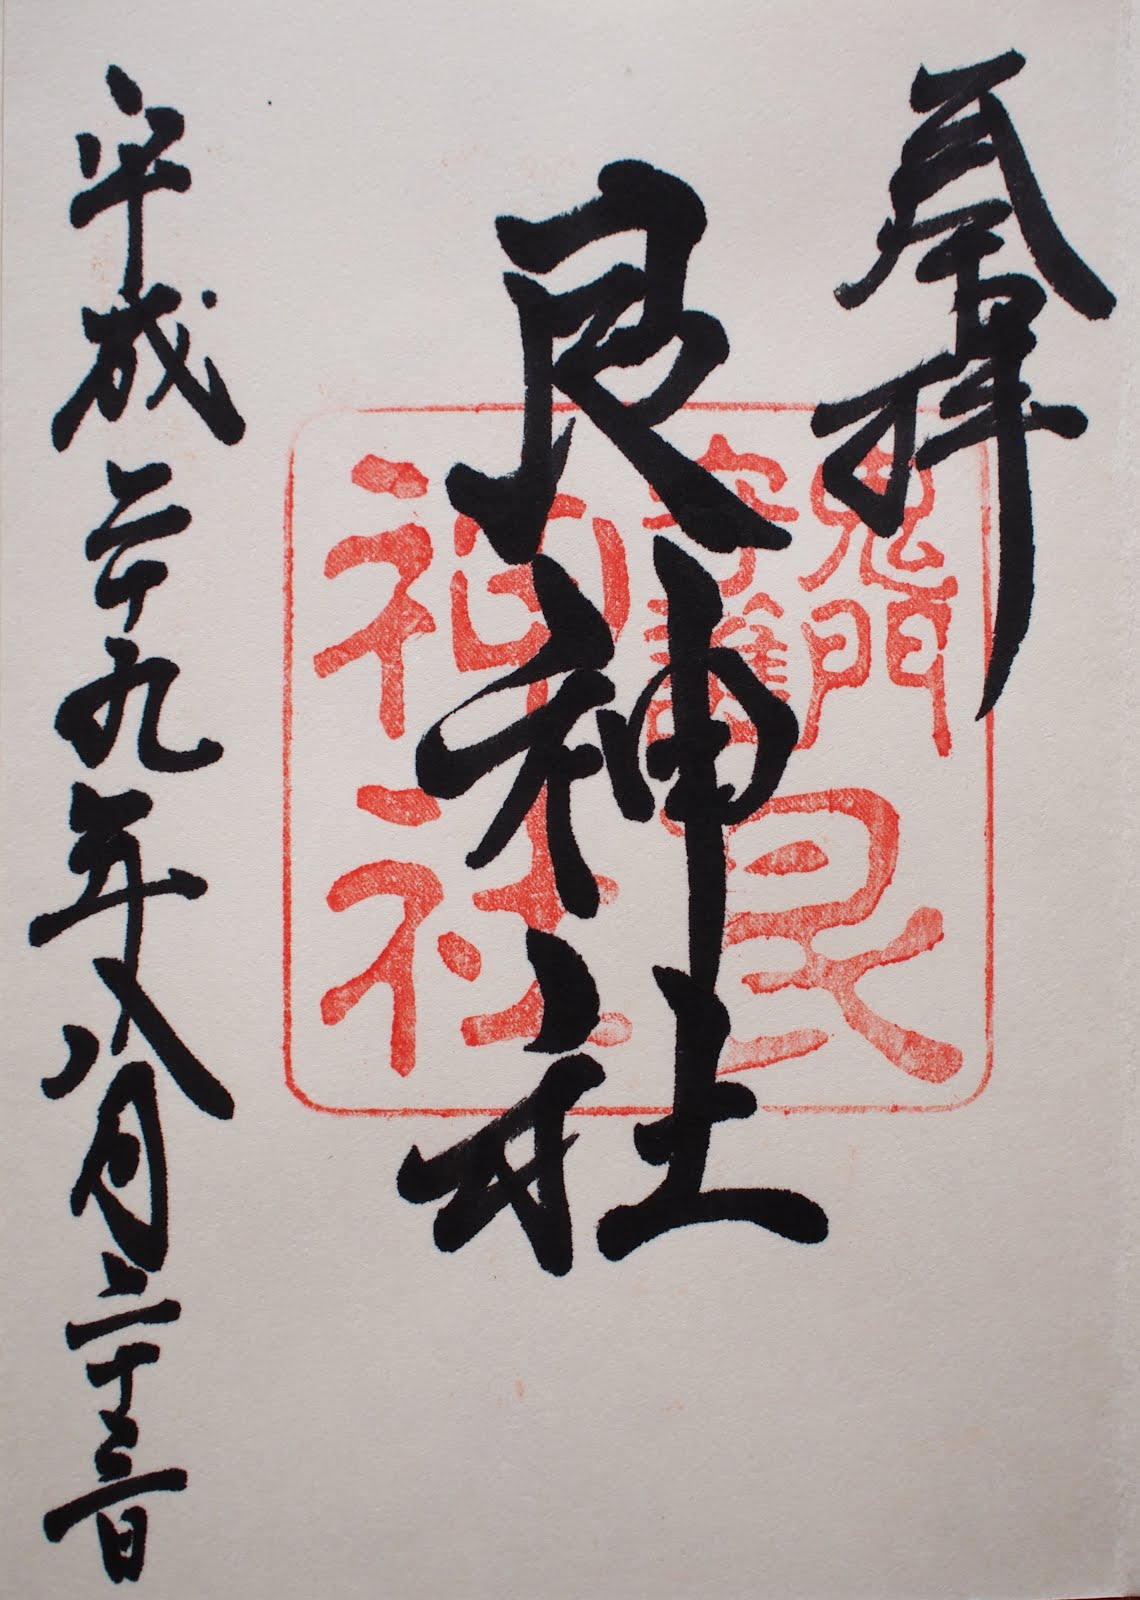 奉拝
鬼門
守護
艮
神社
艮神社
平成二十九年八月二十三日